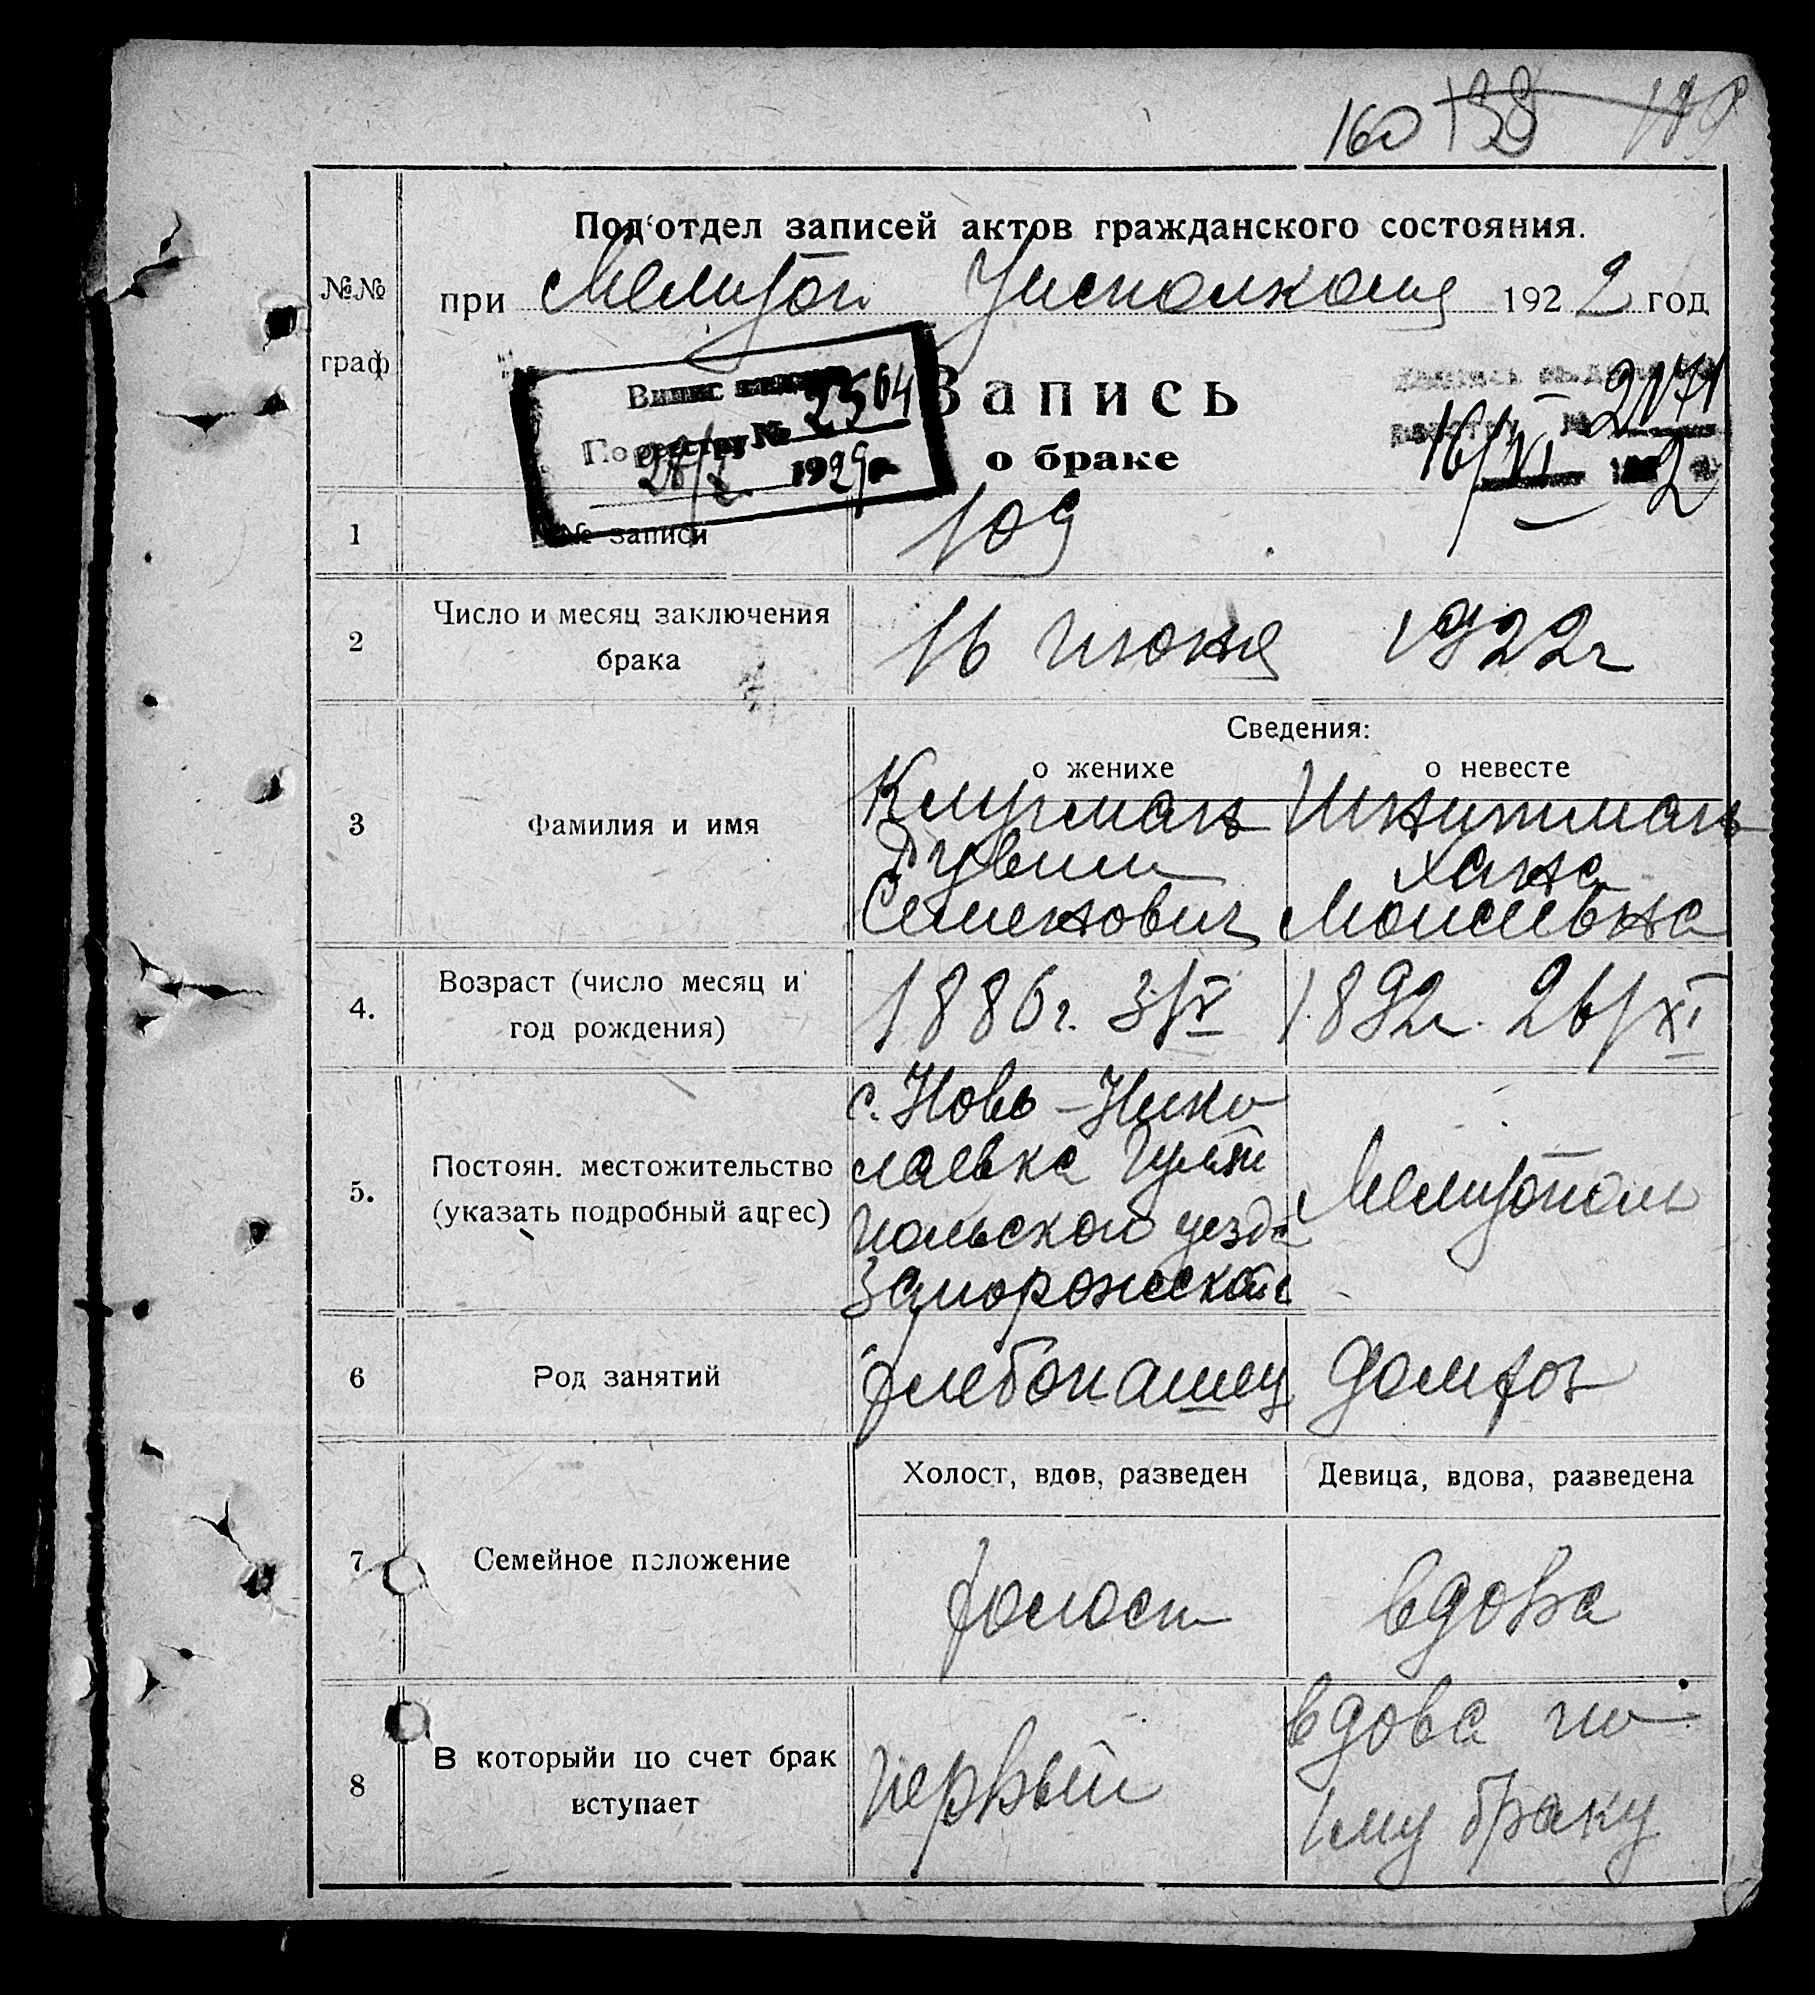 160 138
Под'отдел записей актов гражданского состояния.
№№
граф
при Мелитоп Уисполкоме 1922 год
Выпис
По реестру № 2564
28/X 1929г
Запись
о браке
№ 2171
16/VI 1922
1 № записи 109
2 Число и месяц заключения
брака
16 июня 1922г
Сведения:
о женихе о невесте
3 Фамилия и имя
Клугман Шнитман
Рувим Хана
Семенович Моисеевна
4. Возраст (число месяц и
год рождения)
1886г. 3/V 1892г. 26/XI
5. Постоян. местожительство
(указать подробный адрес)
с. Ново-Нико
лаевка Гуляй
польской уезда
Запорожской
Мелитополь
6 Род занятий хлебопашец домхоз
Холост, вдов, разведен Девица, вдова, разведена
7 Семейное положение холост вдова
8 В которыйи по счет брак
вступает
первый
вдова по
1му браку